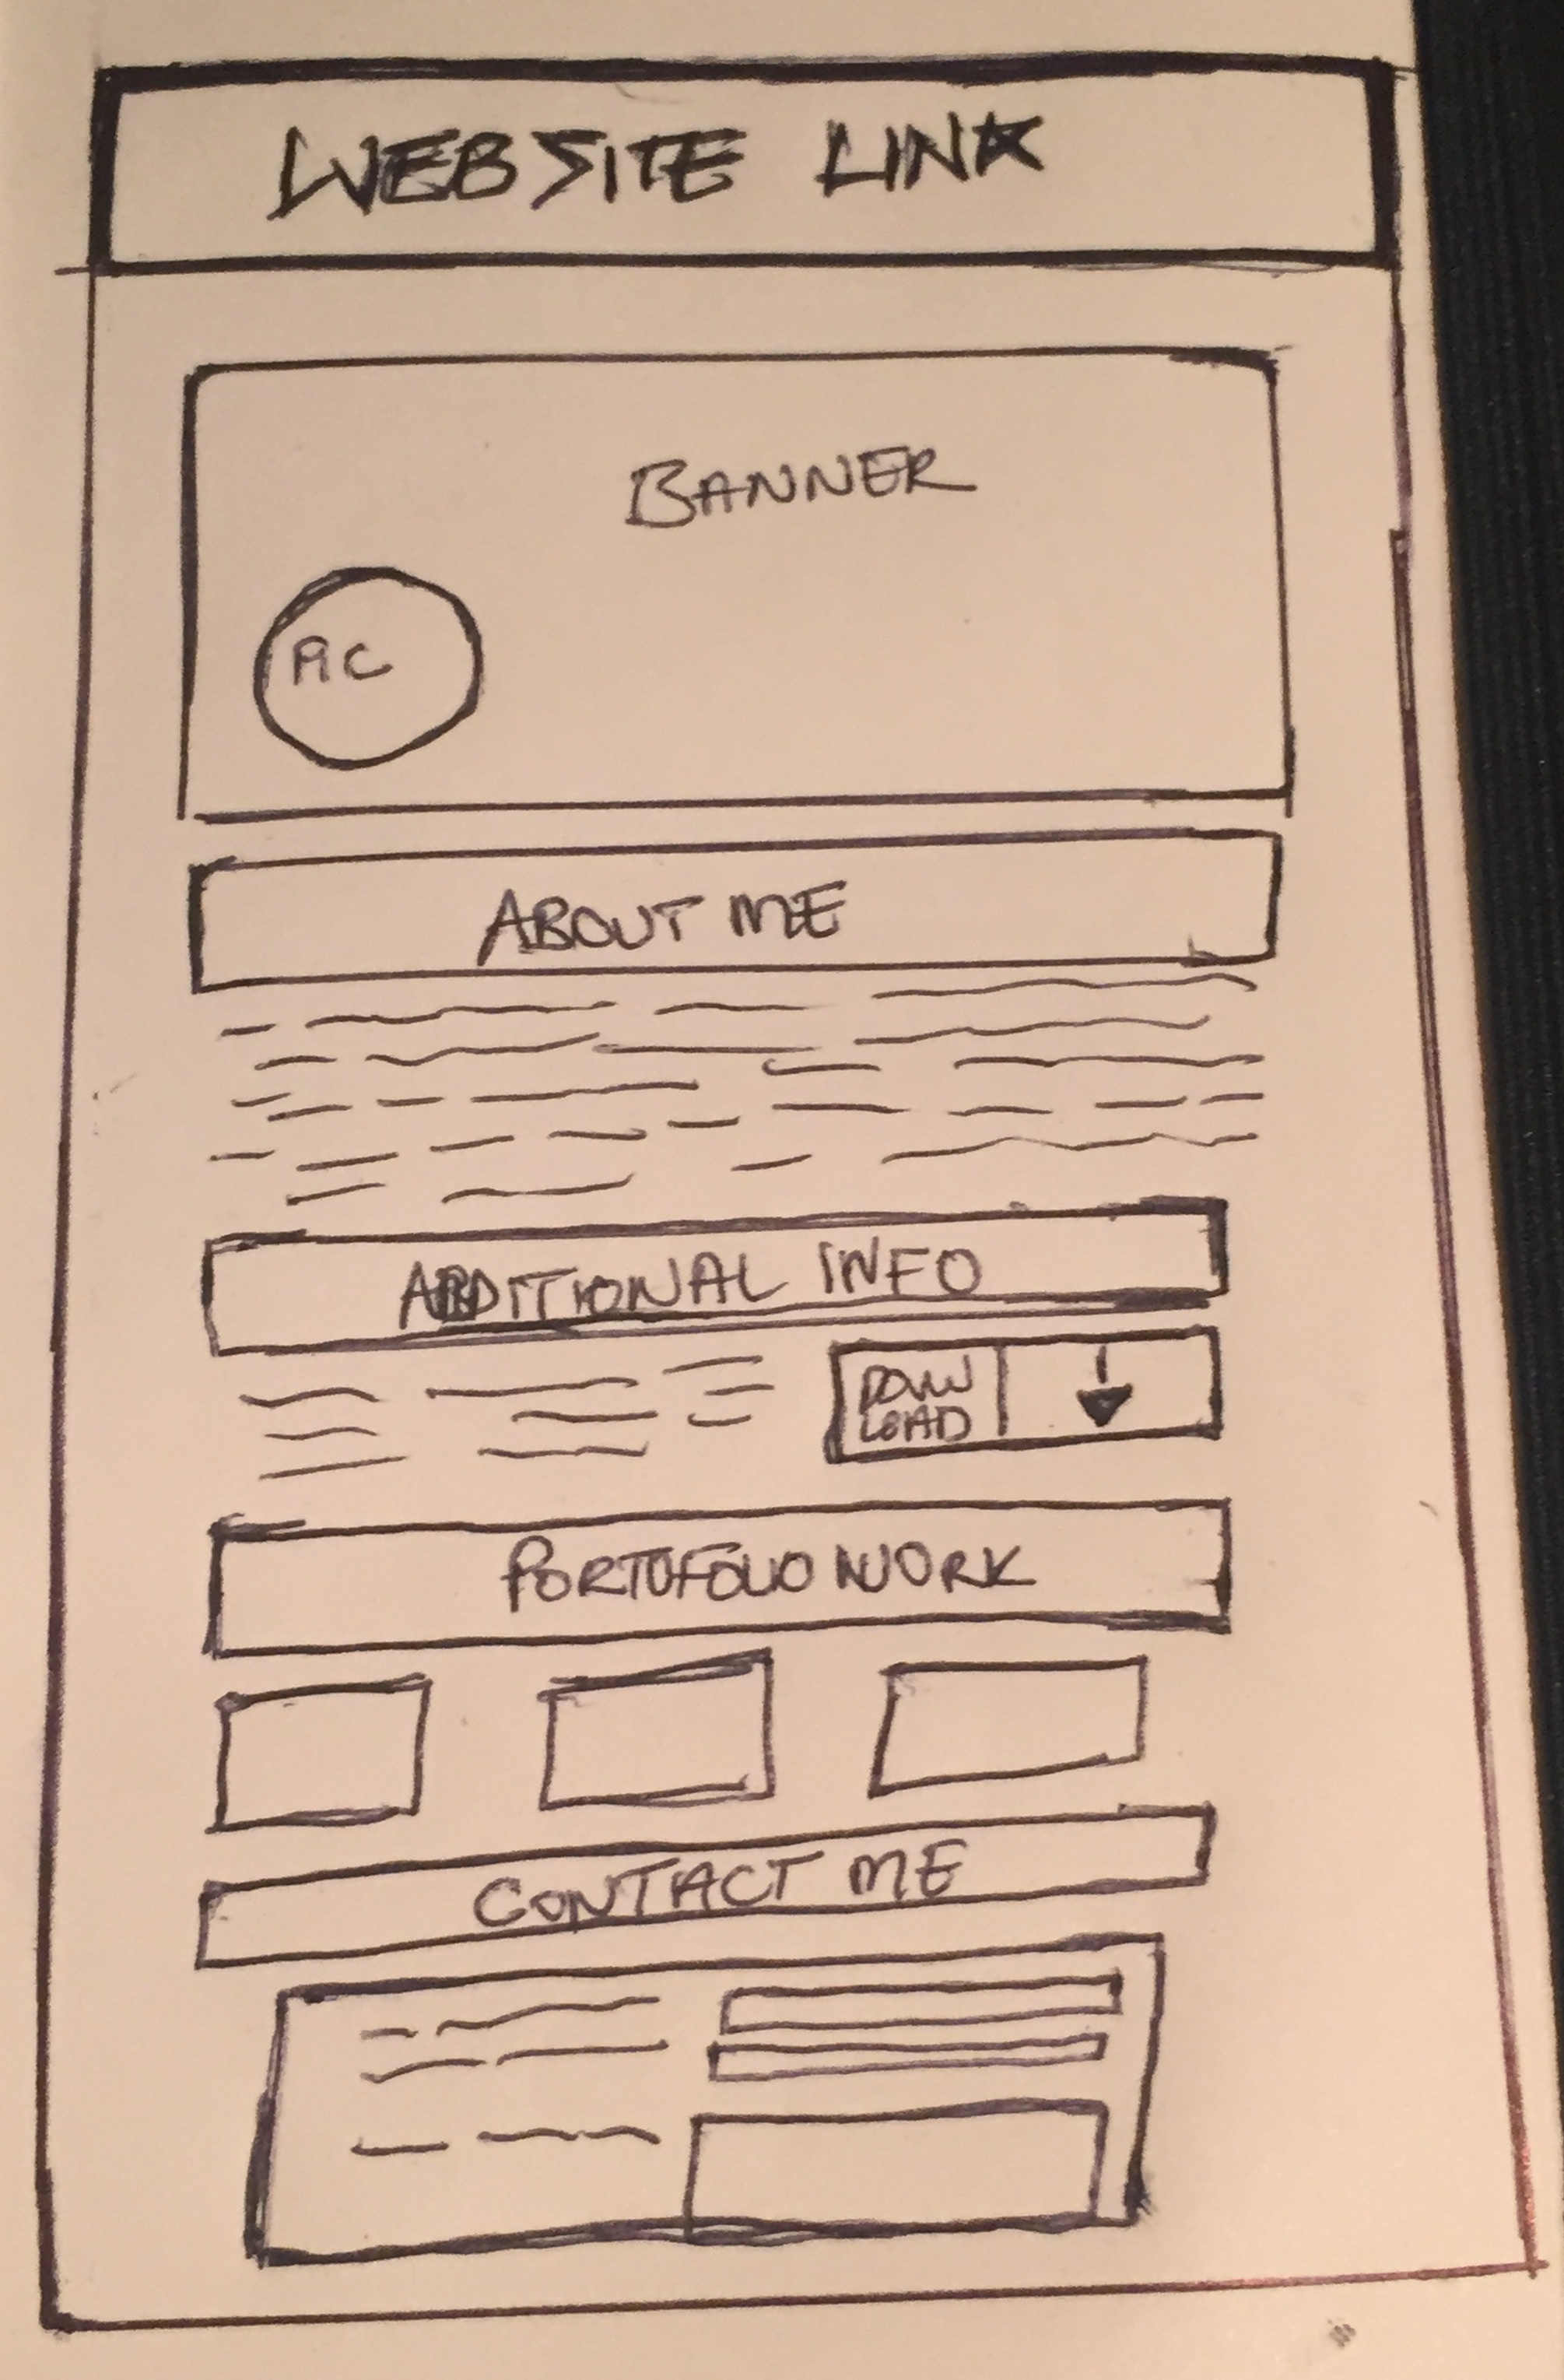 WEBSITE LINK
BANNER
PIC
ABOUT ME
ADDITIONAL INFO
DOWN
LOAD
PORTOFOLIO WORK
CONTACT ME